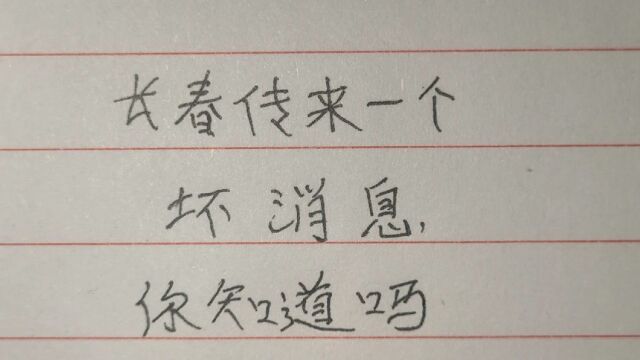 长春传来一个
坏消息,
你知道吗